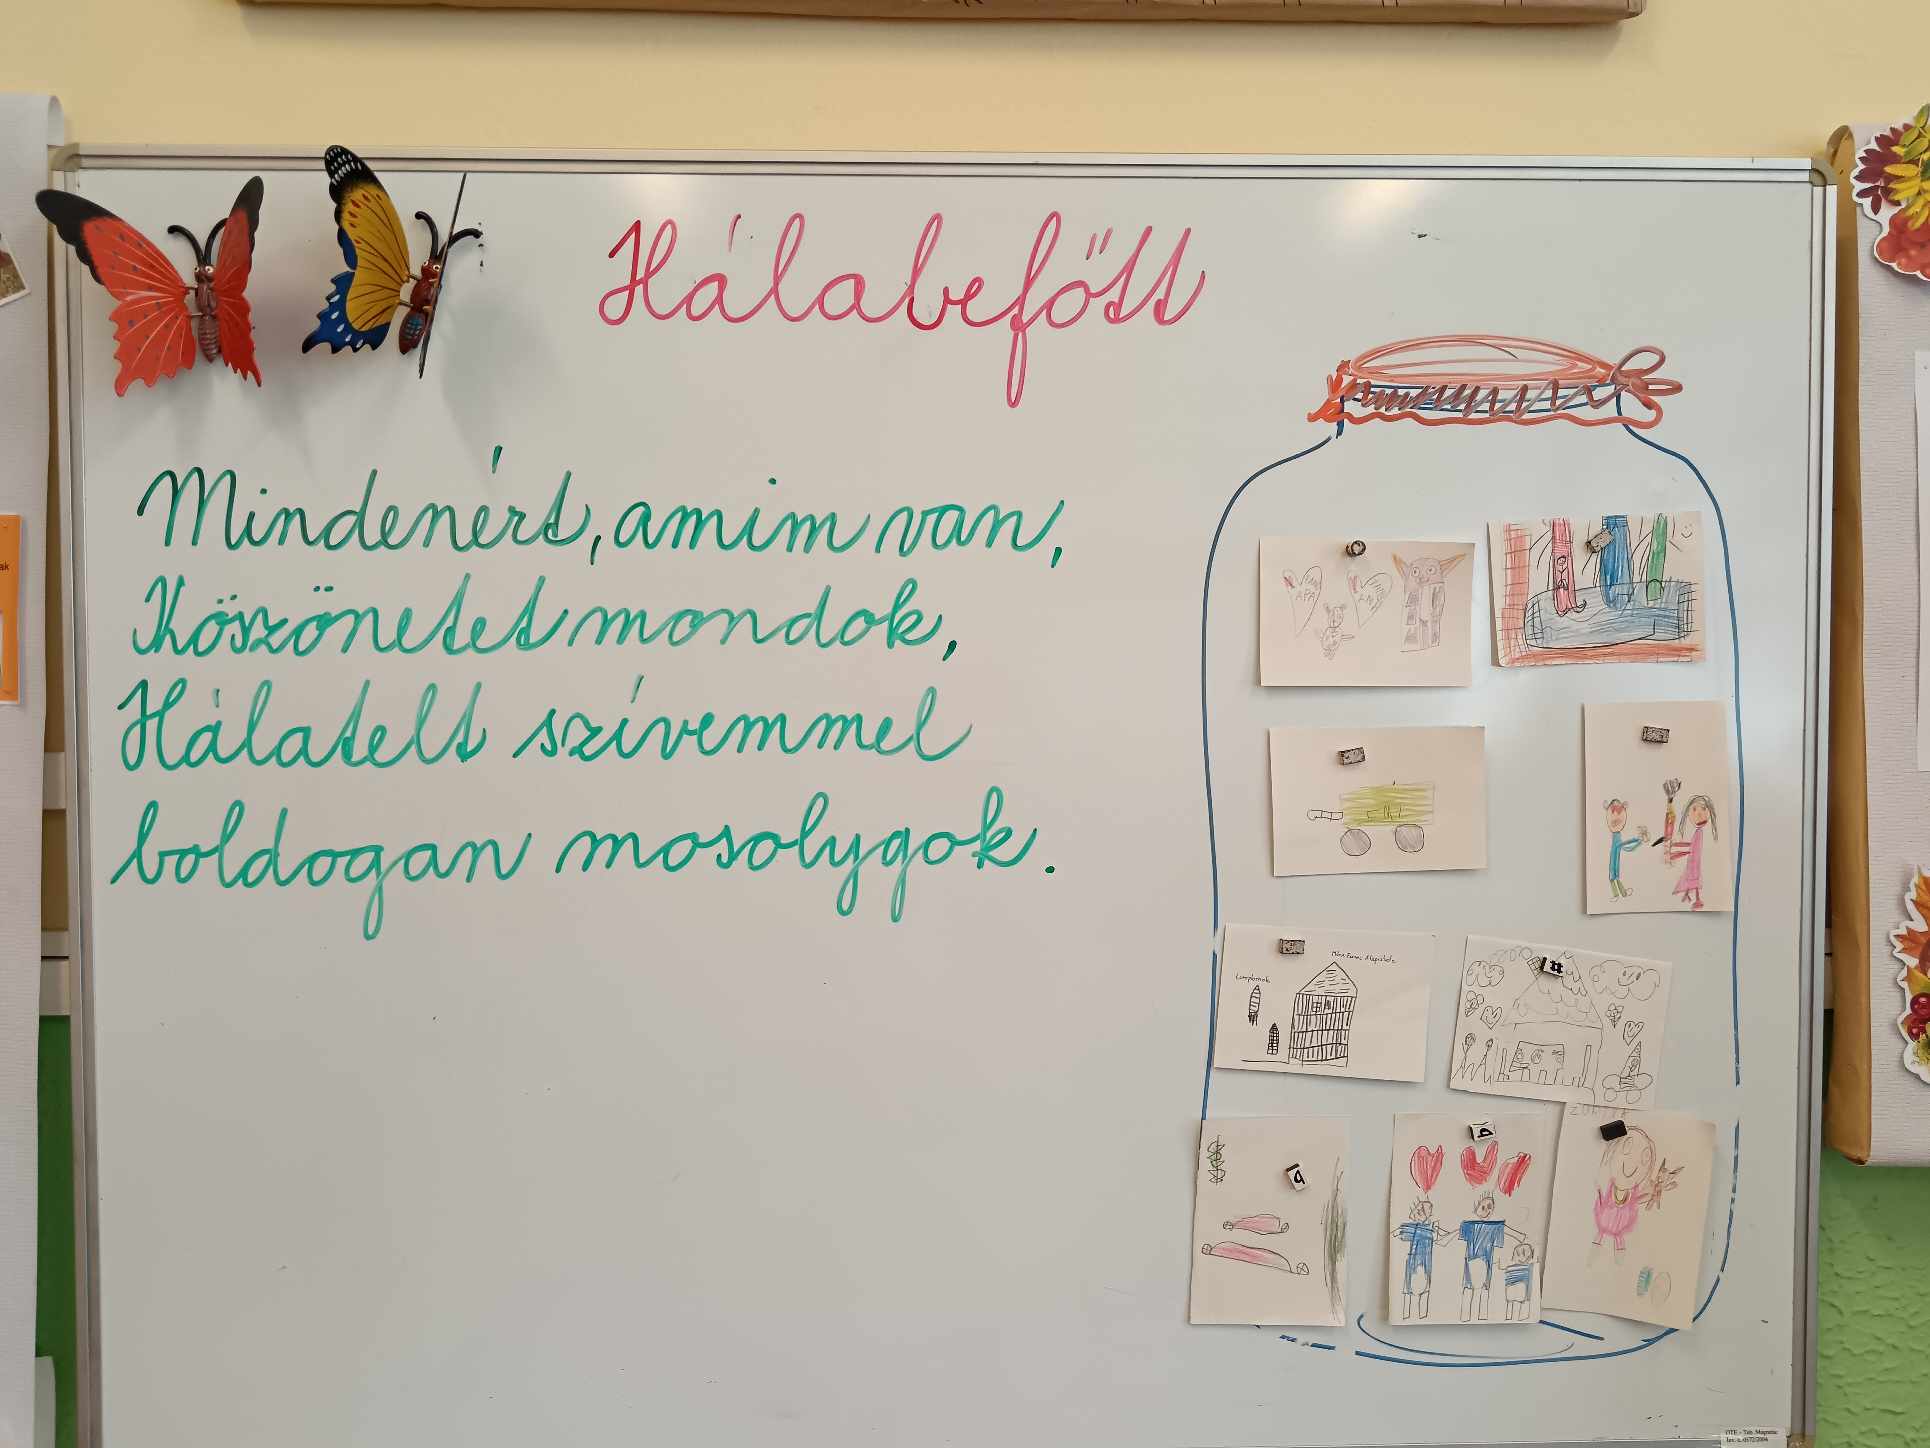 Hálabefőtt
Mindenért, amim van,
Köszönetet mondok,
Hálatelt szívemmel
boldogan mosolygok.
APA
ak